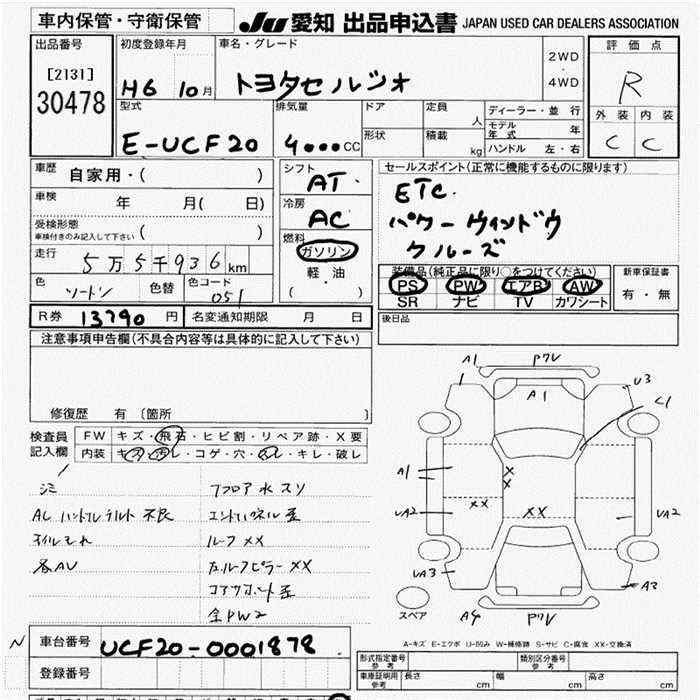 車内保管・守衛保管
JU 愛知 出品申込書 JAPAN USED CAR DEALERS ASSOCIATION
出品番号
[2131]
30478
初度登録年月
H6 10月
車名・グレード
トヨタセルシオ
2WD
・
4WD
評価点
R
外装 内装
C C
型式
E-UCF20
排気量
4000CC
ドア
形状
定員 人
積載 kg
ディーラー・並行
モデル年式 年
ハンドル 左・右
車歴 自家用・( )
車検 年 月( 日)
受検形態
車検付きのみ記入して下さい ( )
走行 5万5千936km
色 ツートン
色替
色コード 051
シフト AT
冷房 AC
燃料
ガソリン
軽・油
( ・ )
セールスポイント(正常に機能するものに限ります)
ETC.
パワーウィンドウ
クルーズ
装備品(純正品に限り○をつけてください)
PS PW エアB AW
SR ナビ TV カワシート
新車保証書
有・無
R券 13790円
名変通知期限 月 日
後日品
注意事項申告欄(不具合内容等は具体的に記入して下さい)
修復歴 有 〔箇所 〕
検査員記入欄
FW キズ・飛石・ヒビ割・リペア跡・X要
内装 キズ・汚レ・コゲ・穴・スレ・キレ・破レ
シミ
AC ハンドルチルト 不良
オイルモレ
各AU
フロア水スソ
エンドパネル歪
ルーフ XX
コアサポート歪
全PW2
A1 P7V
A1
U3
C1
A1
X
X
XX
XX
UA2
UA2
UA3
A3
A4 P7V
スペア
A-キズ E-エクボ U-凹み W-補修跡 S-サビ C-腐食 XX-交換済
N 車台番号 UCF20-0001878
登録番号
形式指定番号 参考
類別区分番号 参考
車庫証明用 参考
長さ cm
幅 cm
高さ cm